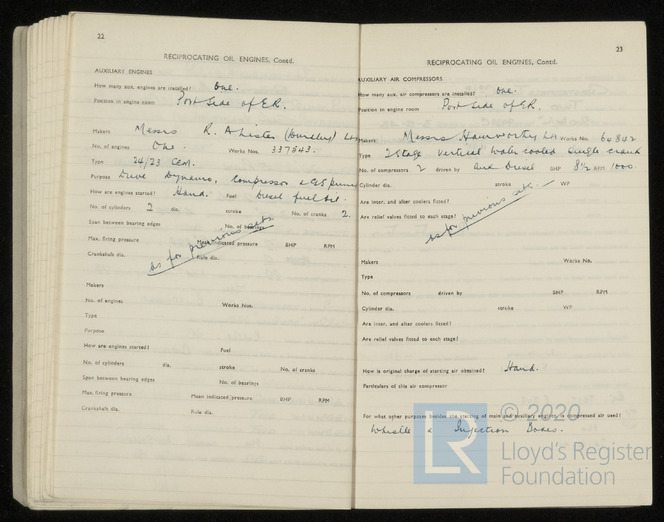 22
RECIPROCATING OIL ENGINES, Contd.
AUXILIARY ENGINES
How many aux. engines are installed? One.
Position in engine room Port Side of E.R.
Makers Messrs R. A Lister (Dursley) Ltd
No. of engines One. Works Nos. 337543.
Type 24/23 CEM.
Purpose Drive Dynamo, Compressor & GS pump
How are engines started? Hand. Fuel Diesel fuel oil.
No. of cylinders 2 dia. stroke No. of cranks 2.
Span between bearing edges No. of bearings
Max. firing pressure Mean indicated pressure BHP RPM
Crankshaft dia. Rule dia.
as for previous
Makers
No. of engines Works Nos.
Type
Purpose
How are engines started? Fuel
No. of cylinders dia. stroke No. of cranks
Span between bearing edges No. of bearings
Max. firing pressure Mean indicated pressure BHP RPM
Crankshaft dia. Rule dia.
23
RECIPROCATING OIL ENGINES, Contd.
AUXILIARY AIR COMPRESSORS
How many aux. air compressors are installed? One.
Position in engine room Port Side of E.R.
Makers Messrs Hamworthy Ltd Works No. 64842
Type 2 Stage Vertical Water cooled Single crank
No. of compressors 2 driven by Aux Diesel BHP 8½ RPM 1000
Cylinder dia. stroke WP
Are inter. and after coolers fitted?
Are relief valves fitted to each stage?
as for previous
Makers Works No.
Type
No. of compressors driven by BHP RPM
Cylinder dia. stroke WP
Are inter. and after coolers fitted?
Are relief valves fitted to each stage?
How is original charge of starting air obtained? Hand.
Particulars of this air compressor
For what other purposes besides the starting of main and auxiliary engines is compressed air used?
Whistle & Injection Boxes.
LR
© 2020
Lloyd's Register
Foundation